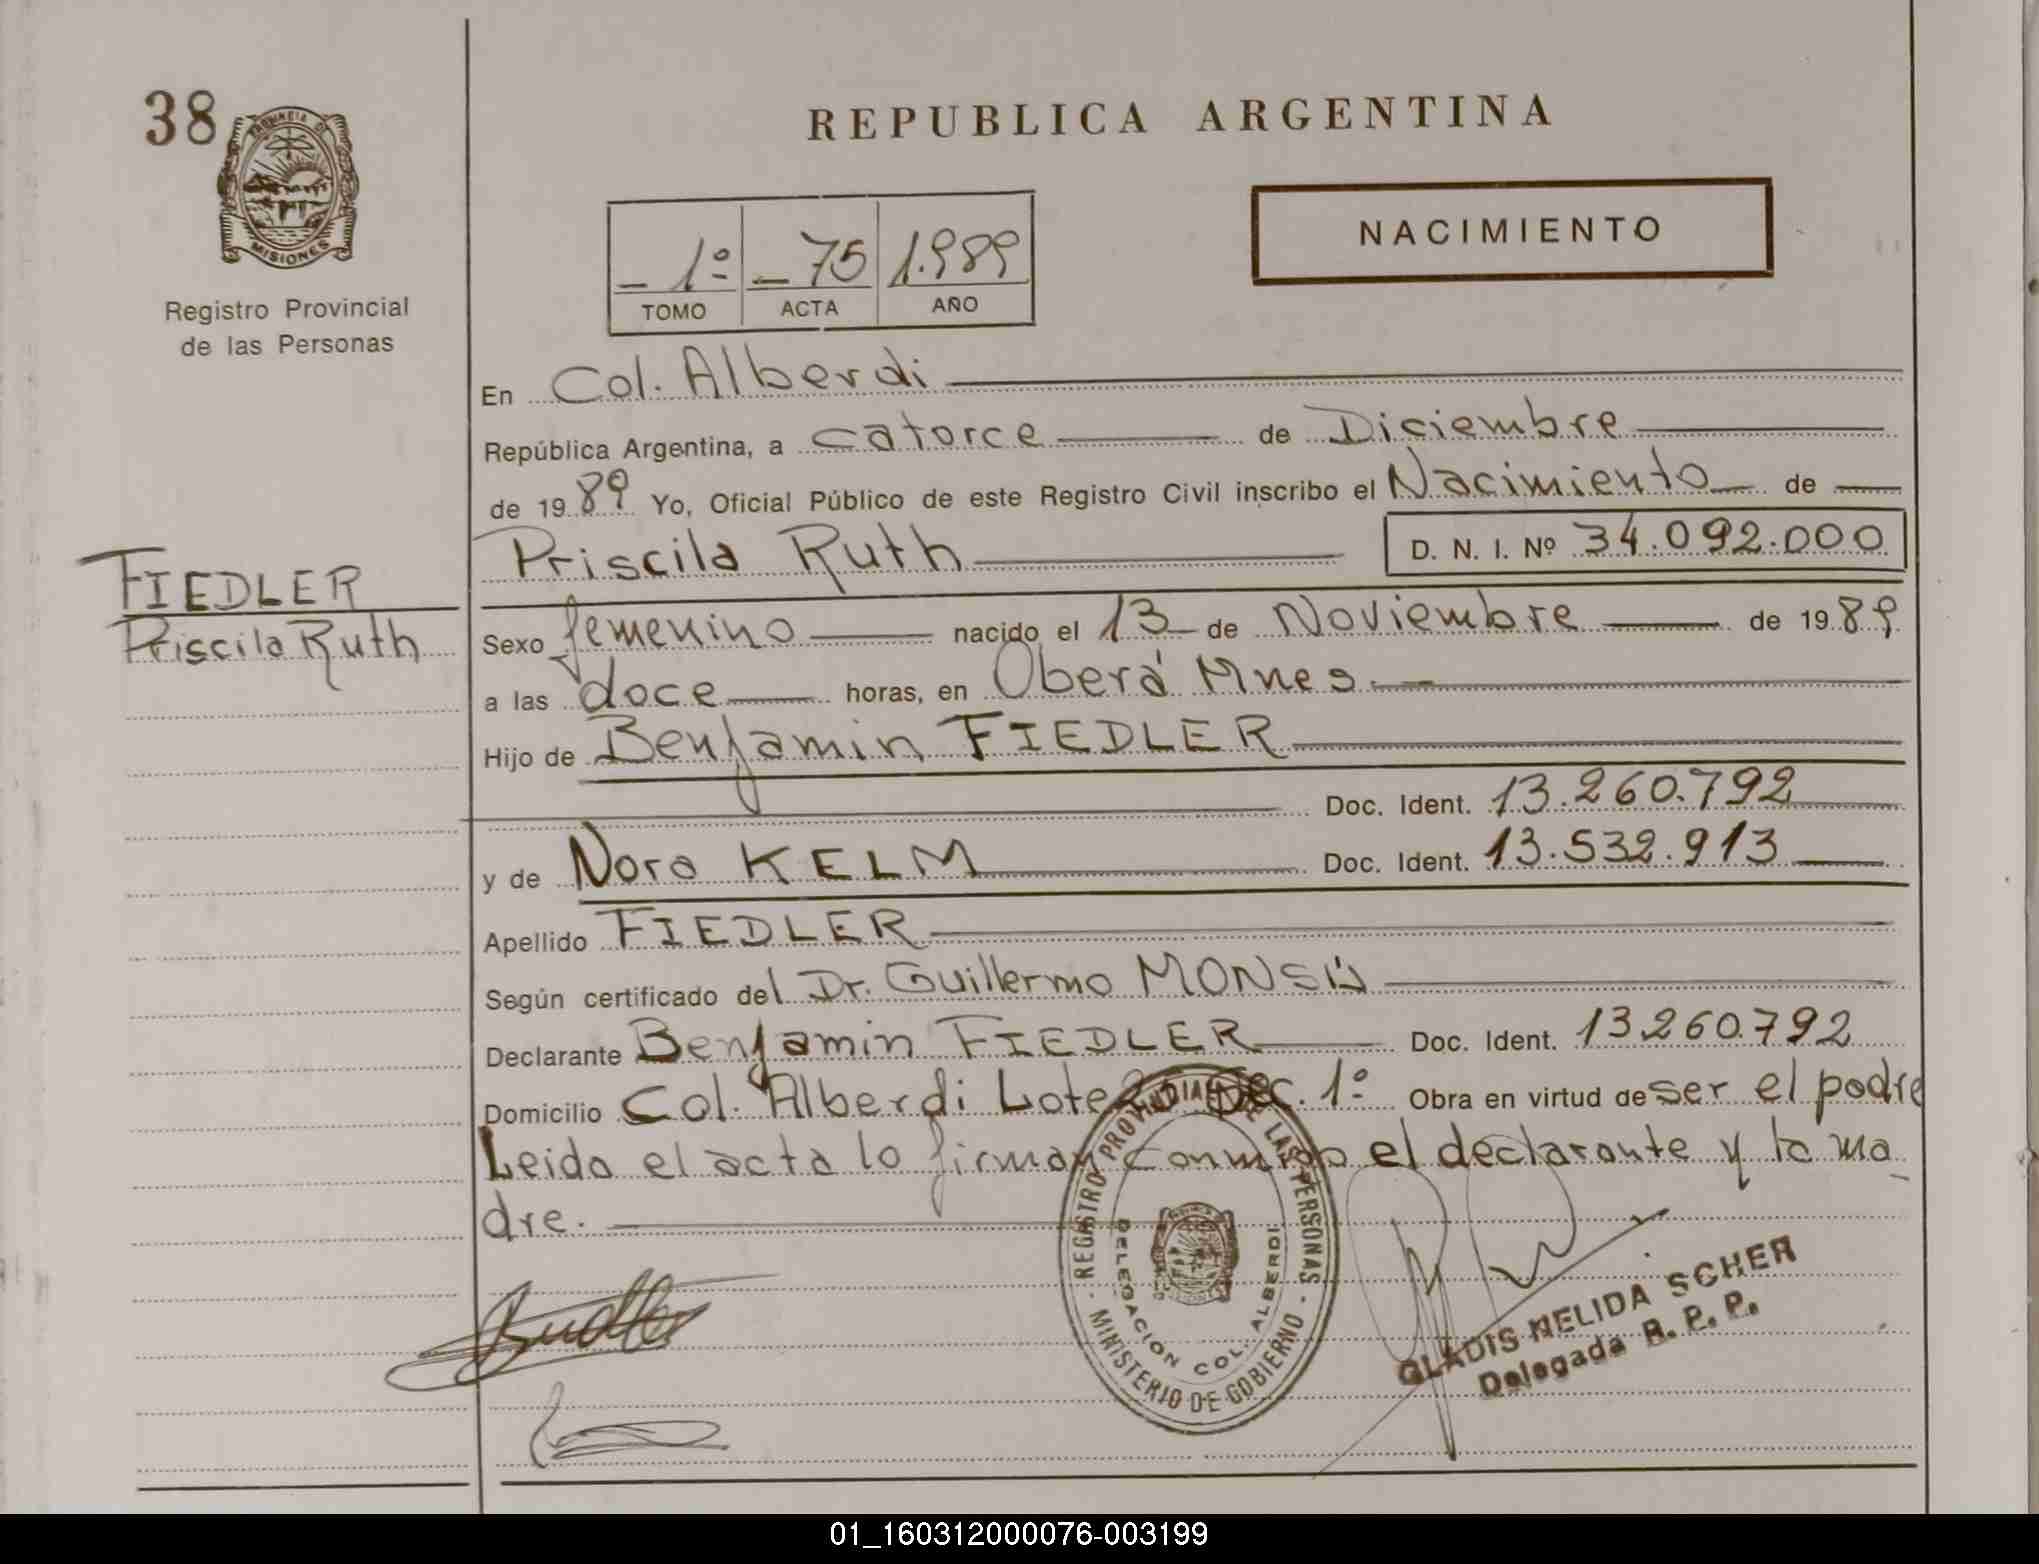 38
PROVINCIA DE
MISIONES
Registro Provincial
de las Personas
REPUBLICA ARGENTINA
1º 75 1.989
TOMO ACTA AÑO
NACIMIENTO
En Col. Alberdi
República Argentina, a catorce de Diciembre
de 1989 Yo, Oficial Público de este Registro Civil inscribo el Nacimiento de
Priscila Ruth D. N. I. Nº 34.092.000
FIEDLER
Priscila Ruth
Sexo femenino nacido el 13 de Noviembre de 1989
a las doce horas, en Oberá Mnes.
Hijo de Benjamin FIEDLER
Doc. Ident. 13.260.792
y de Nora KELM Doc. Ident. 13.532.913
Apellido FIEDLER
Según certificado del Dr. Guillermo
Declarante Benjamin FIEDLER Doc. Ident. 13260.792
Domicilio Col. Alberdi Lote Sec. 1º Obra en virtud de ser el padre
Leida el acta la firman conmigo el declarante y la ma
dre.
REGISTRO PROVINCIAL DE LAS PERSONAS
DELEGACION COL. ALBERDI
MINISTERIO DE GOBIERNO
GLADIS NELIDA SCHER
Delegada R. P. P.
01_160312000076-003199